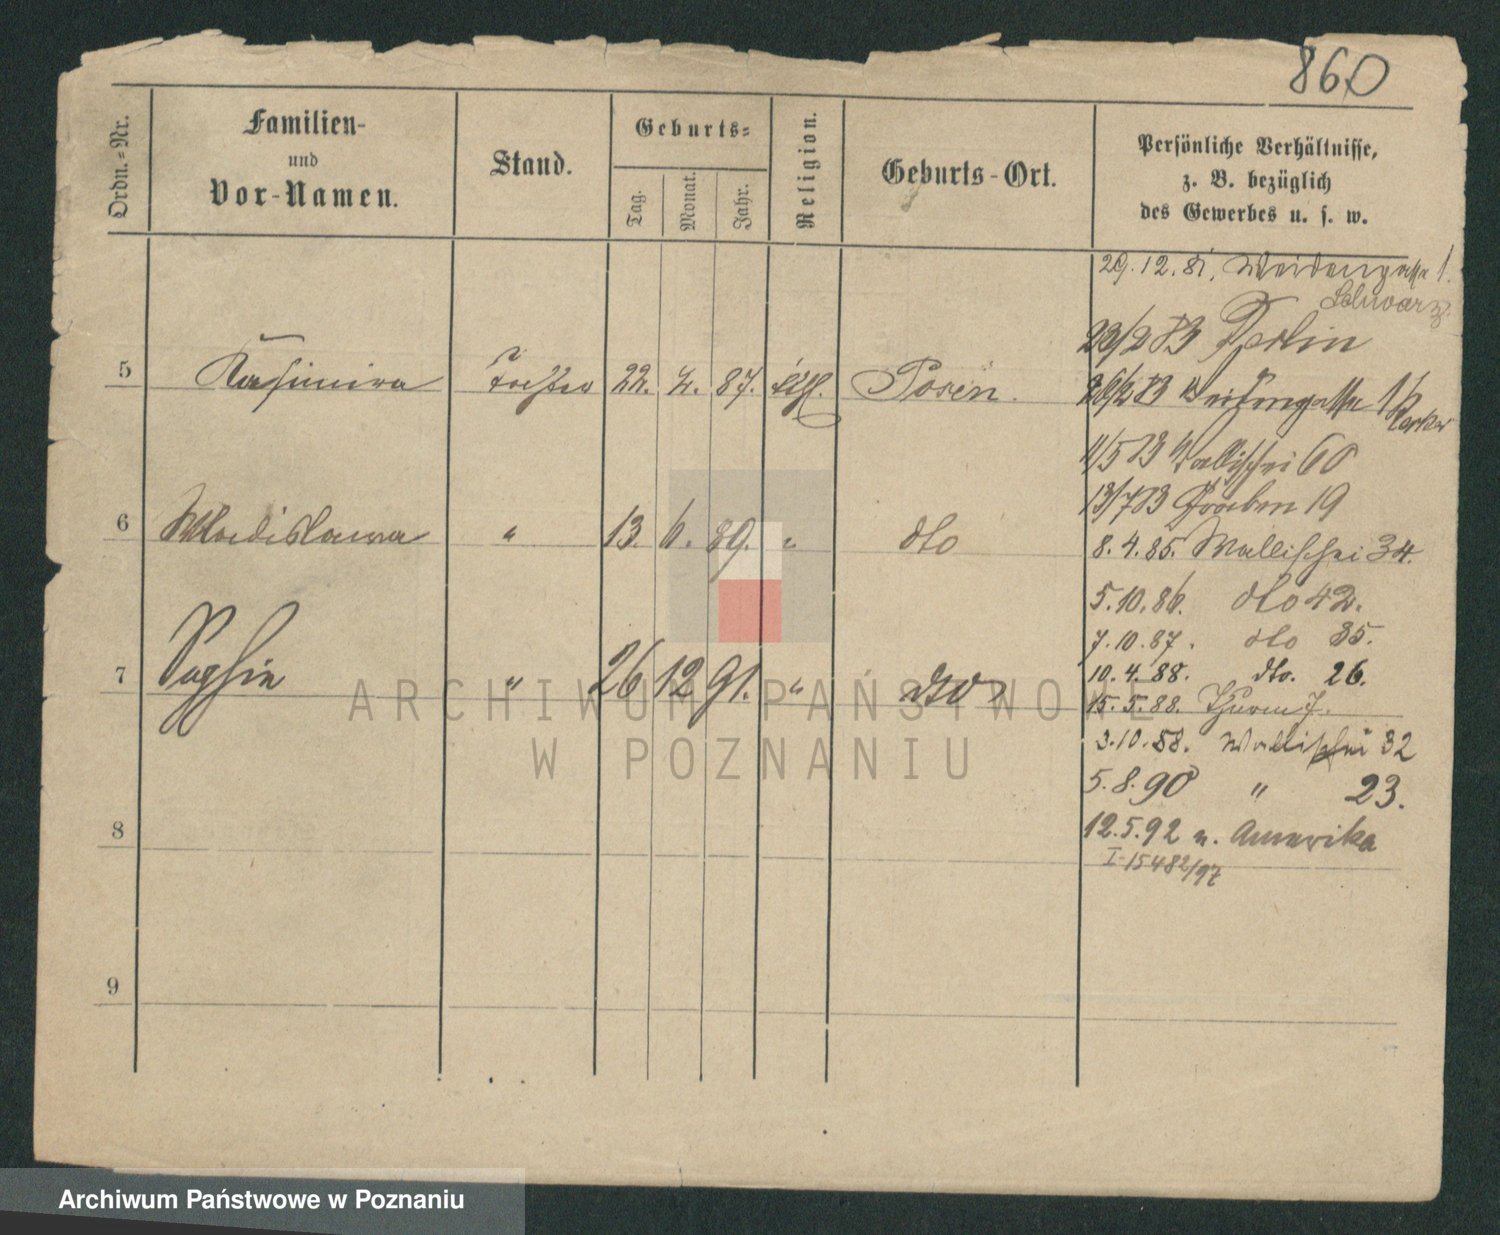 860
Ordn.-Nr.
Familien-
und
Vor-Namen.
Stand.
Geburts-
Tag.
Monat.
Jahr.
Religion.
Geburts-Ort.
Persönliche Verhältnisse,
z. B. bezüglich
des Gewerbes u. s. w.
29.12.81. Weidengasse 1.
Schwarz
23/2 83 Berlin
5 Kasimira Tochter 22. 2. 87. kath. Posen.
26/2 83 Weidengasse 1
11/5 83 Wallischei 60
13/7 83 Graben 19
6 Wladislawa " 13. 6. 89. " dto
8.4.85. Wallischei 34.
5.10.86. dto 42.
7.10.87. dto 35.
7 Sophie " 26 12 91. " dto
10.4.88. dto. 26.
15.5.88. Thurm 7.
3.10.88. Wallischei 32
5.8.90 " 23.
8
12.5.92 n. Amerika
I-15482/97
9
ARCHIWUM PAŃSTWOWE
W POZNANIU
Archiwum Państwowe w Poznaniu